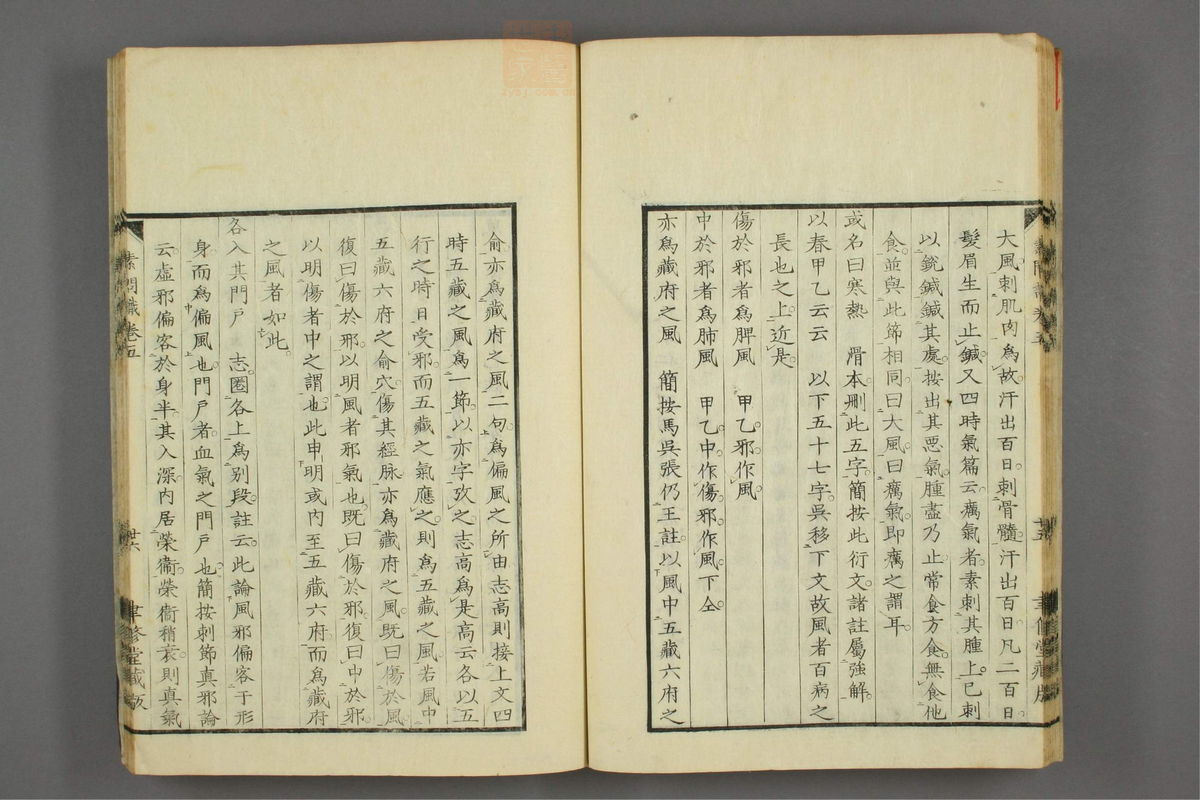 大風刺肌肉爲故汗出百日刺骨髓汗出百日凡二百日
髮眉生而止鍼又四時氣篇云癘氣者素刺其腫上已刺
以銳鍼鍼其處按出其惡氣腫盡乃止常食方食無食他
食並與此節相同曰大風曰癘氣卽癘之謂耳
或名曰寒熱　滑本刪此五字簡按此衍文諸註屬強解
以春甲乙云云　以下五十七字吳移下文故風者百病之
長也之上近是
傷於邪者爲脾風　甲乙邪作風
中於邪者爲肺風　甲乙中作傷邪作風下仝
亦爲藏府之風　簡按馬吳張仍王註以風中五藏六府之
十五
聿修堂藏版
俞亦爲藏府之風二句爲偏風之所由志高則接上文四
時五藏之風爲一節以亦字攷之志高爲是高云各以五
行之時日受邪而五藏之氣應之則爲五藏之風若風中
五藏六府之俞穴傷其經脉亦爲藏府之風旣曰傷於風
復曰傷於邪以明風者邪氣也旣曰傷於邪復曰中於邪
以明傷者中之謂也此申明或內至五藏六府而爲藏府
之風者如此
各入其門戶　志圈各上爲別段註云此論風邪偏客于形
身而爲偏風也門戶者血氣之門戶也簡按刺節眞邪論
云虛邪偏客於身半其入深內居榮衞榮衞稍衰則眞氣
素問識卷五
十六
聿修堂藏版